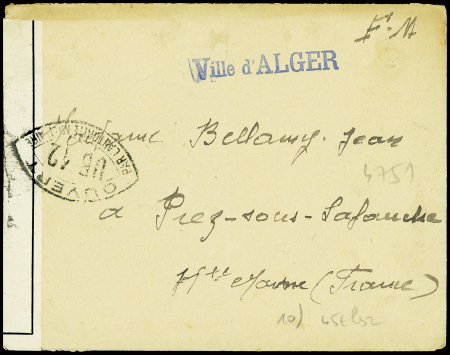 F. M
Ville d'ALGER
Madame Bellamy Jean
4751
à Prez-sous-Lafauche
Hte Marne (France)
10)
OUVERT
PAR L'AUTORITÉ MILITAIRE